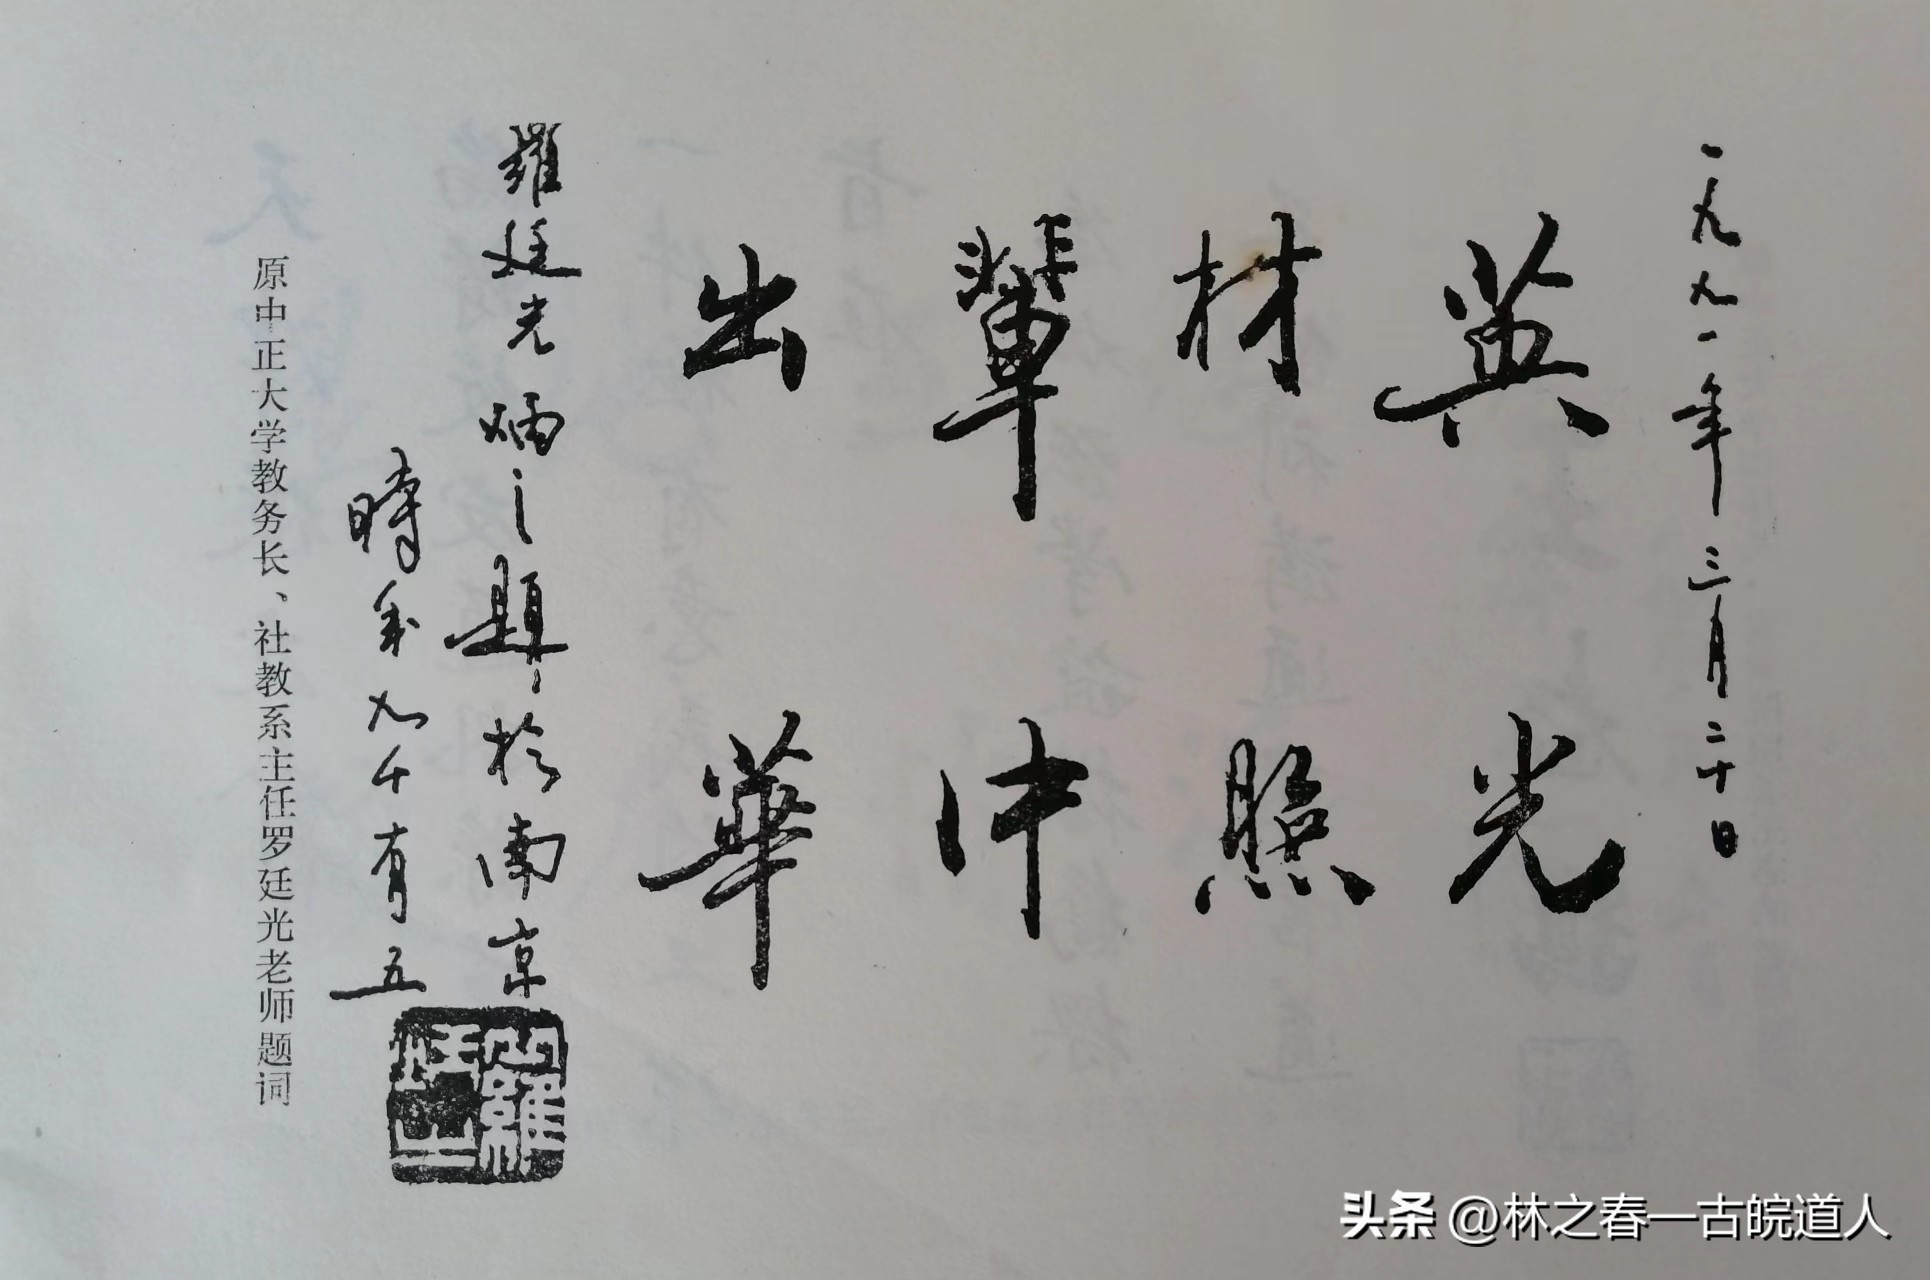 一九九一年三月二十日
英材輩出
光照中華
羅廷光炳之題於南京
時年九十有五
羅炳之
原中正大学教务长、社教系主任罗廷光老师题词
头条 @林之春一古皖道人